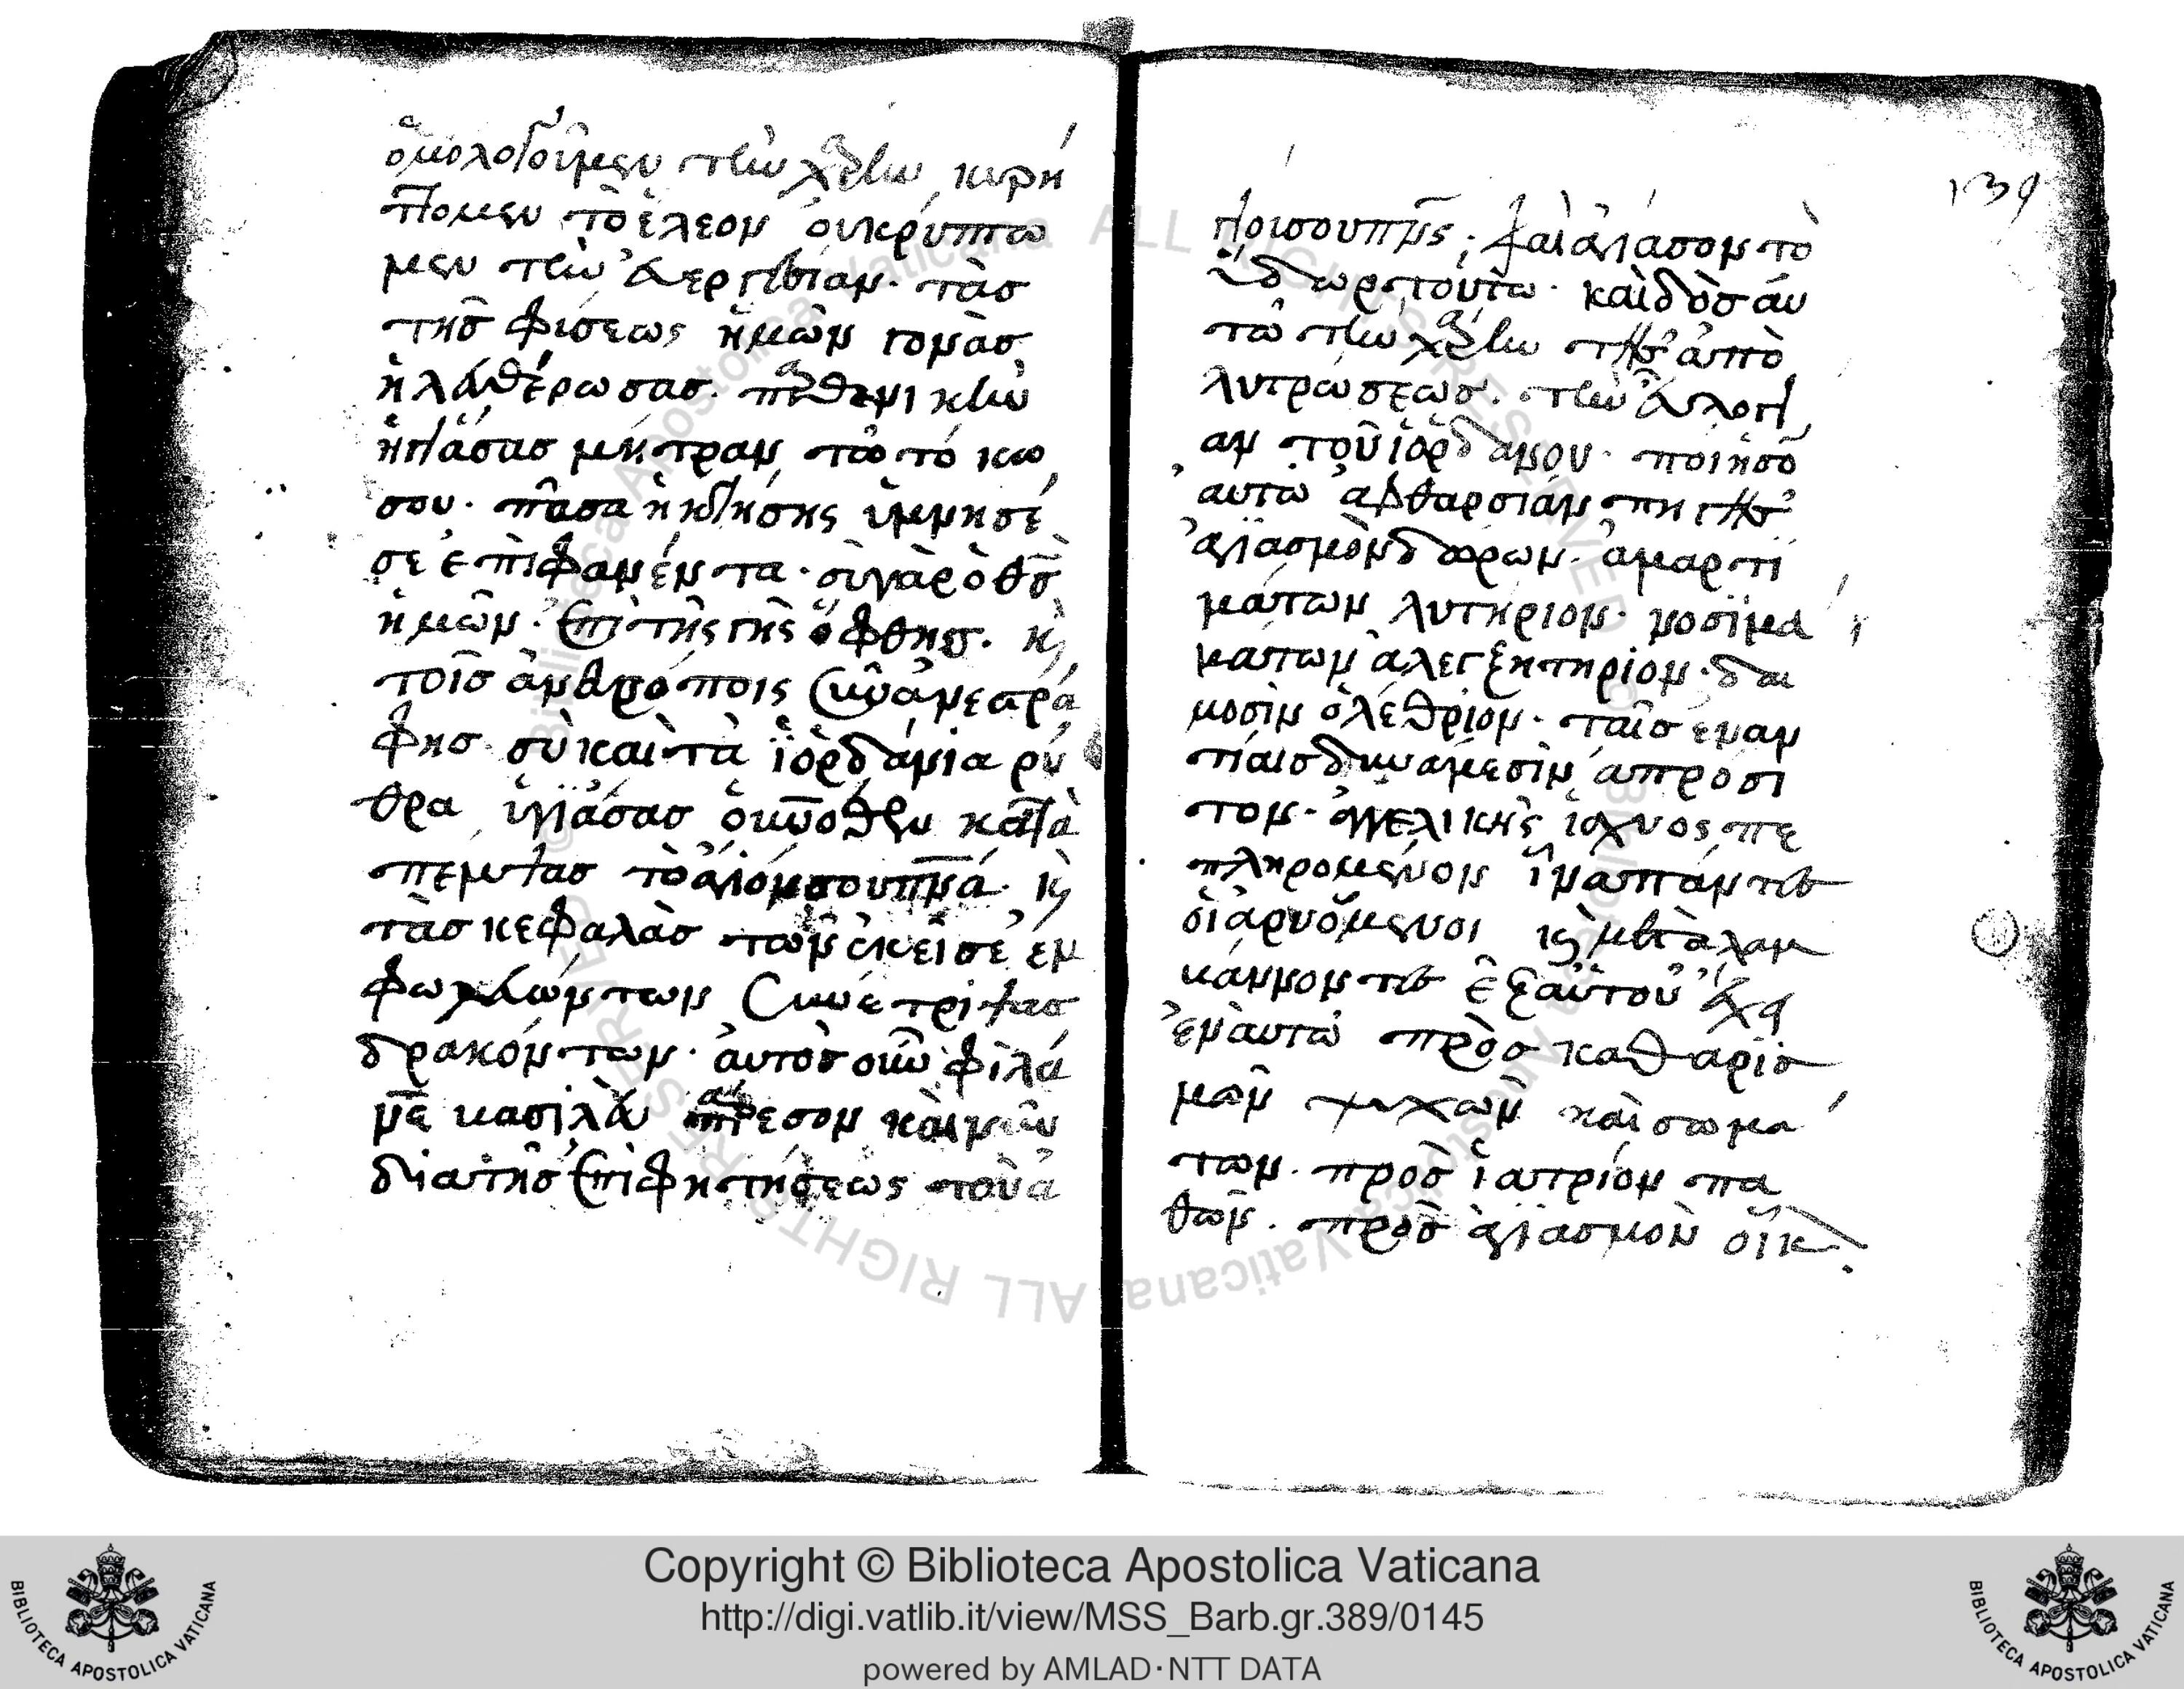 ὁμολογοῦμεν τὴν χάριν κυρή
πομεν τὸ ἔλεον οὐ κρύπτω
μεν τὴν ἐυεργεσίαν· τὰσ
τησ φύσεως ἡμῶν γονὰσ
ἠλευθέρωσασ. παρθενικὴν
ἡγίασασ μήτραν τῶ τό κω
σου· πᾶσα ἡ κτήσης ὕμνησέ
σε ἐπιφανέντα· σὺ γὰρ ὁ θσ
ἡμῶν· ἐπὶ τῆς γῆς ὄφθησ. κ
τοῖσ ἀνθρόποις συνανεστρά
φησ· σὺ καὶ τὰ ἰορδάνια ρύ
θρα ἡγίασασ οὐνόθεν κατα
πέμψασ τὸ άγιόν σου πνα κ
τὰσ κεφαλὰσ τῶν ἐκεῖσε ἐμ
φωλευώντων συνέτριψασ
δρακόντων· ἀυτὸσ οὖν φιλά
νε βασιλεῦ πάρεσον καὶ νῦν
διὰ τῆσ ἐπιφητήσεως τοῦ ἁ
139
γίοι σου πνς· καὶ ἁγίασον τὸ
ὕδωρ τούτω· καὶ δὸσ ἀυ
τῶ τὴν χάριν τῆσ ἀπὸ
λυτρώσεωσ. τὴν ἐυλογί
αν τοῦ ἰορδάνου· ποίησο
αυτῶ ἀφθαρσίασ πηγὴσ
ἁγιασμὸν δόρων. ἁμαρτι
μάτων λυτήριον· νοσιμά
μάτων ἀλεγξητηρίον· δαι
μοσὶν ὀλέθριον· ταῖσ ἐναν
τίαισ δυνάμεσιν ἀπρόσι
τον· ἀγγελικῆς ἰσχυος πε
πληρομένον ἵνα πάντες
οἱ ἀρυόμενοι κ μεταλαμ
βάννοντες ἐξ αὐτοῦ ἔχη
ἐν αυτῶ πρὸσ καθαρισ
μῶν ψυχῶν καὶ σωμά
των. πρὸσ ἰατρίον πα
θῶν. πρὸσ ἁγιασμὸν οἴκ
Copyright © Biblioteca Apostolica Vaticana
http://digi.vatlib.it/view/MSS_Barb.gr.389/0145
powered by AMLAD·NTT DATA
BIBLIOTECA APOSTOLICA VATICANA
BIBLIOTECA APOSTOLICA VATICANA